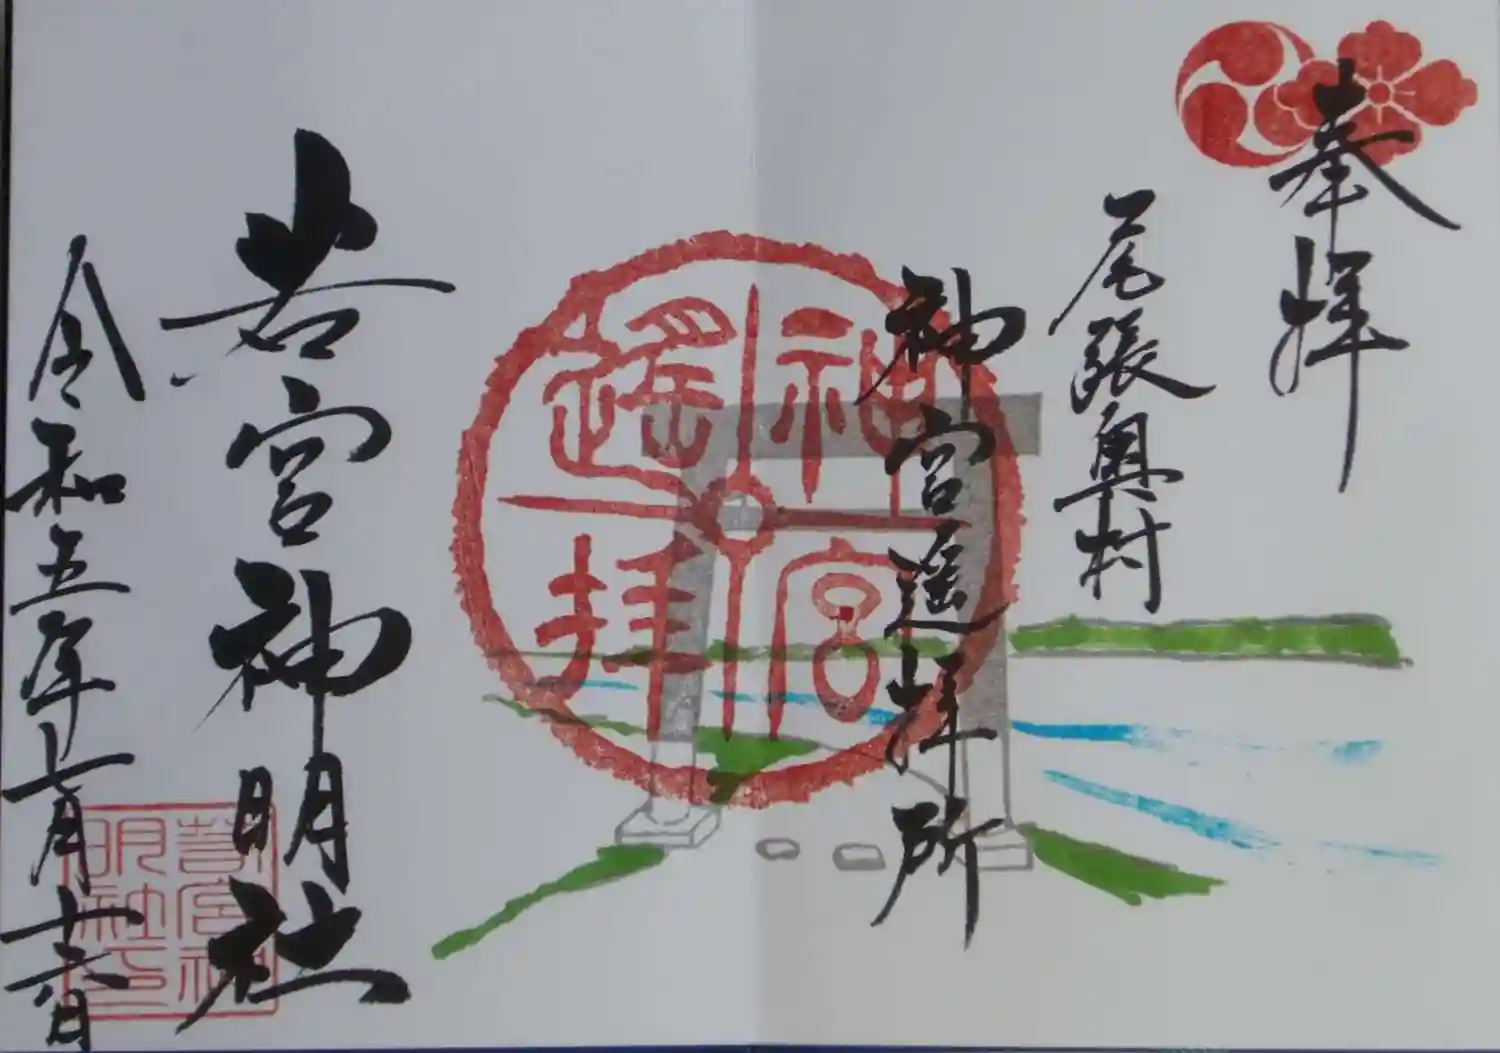 奉拝
尾張奥村
神宮遥拝所
神宮
遥拝
若宮神明社
若宮神
明社印
令和五年七月十六日